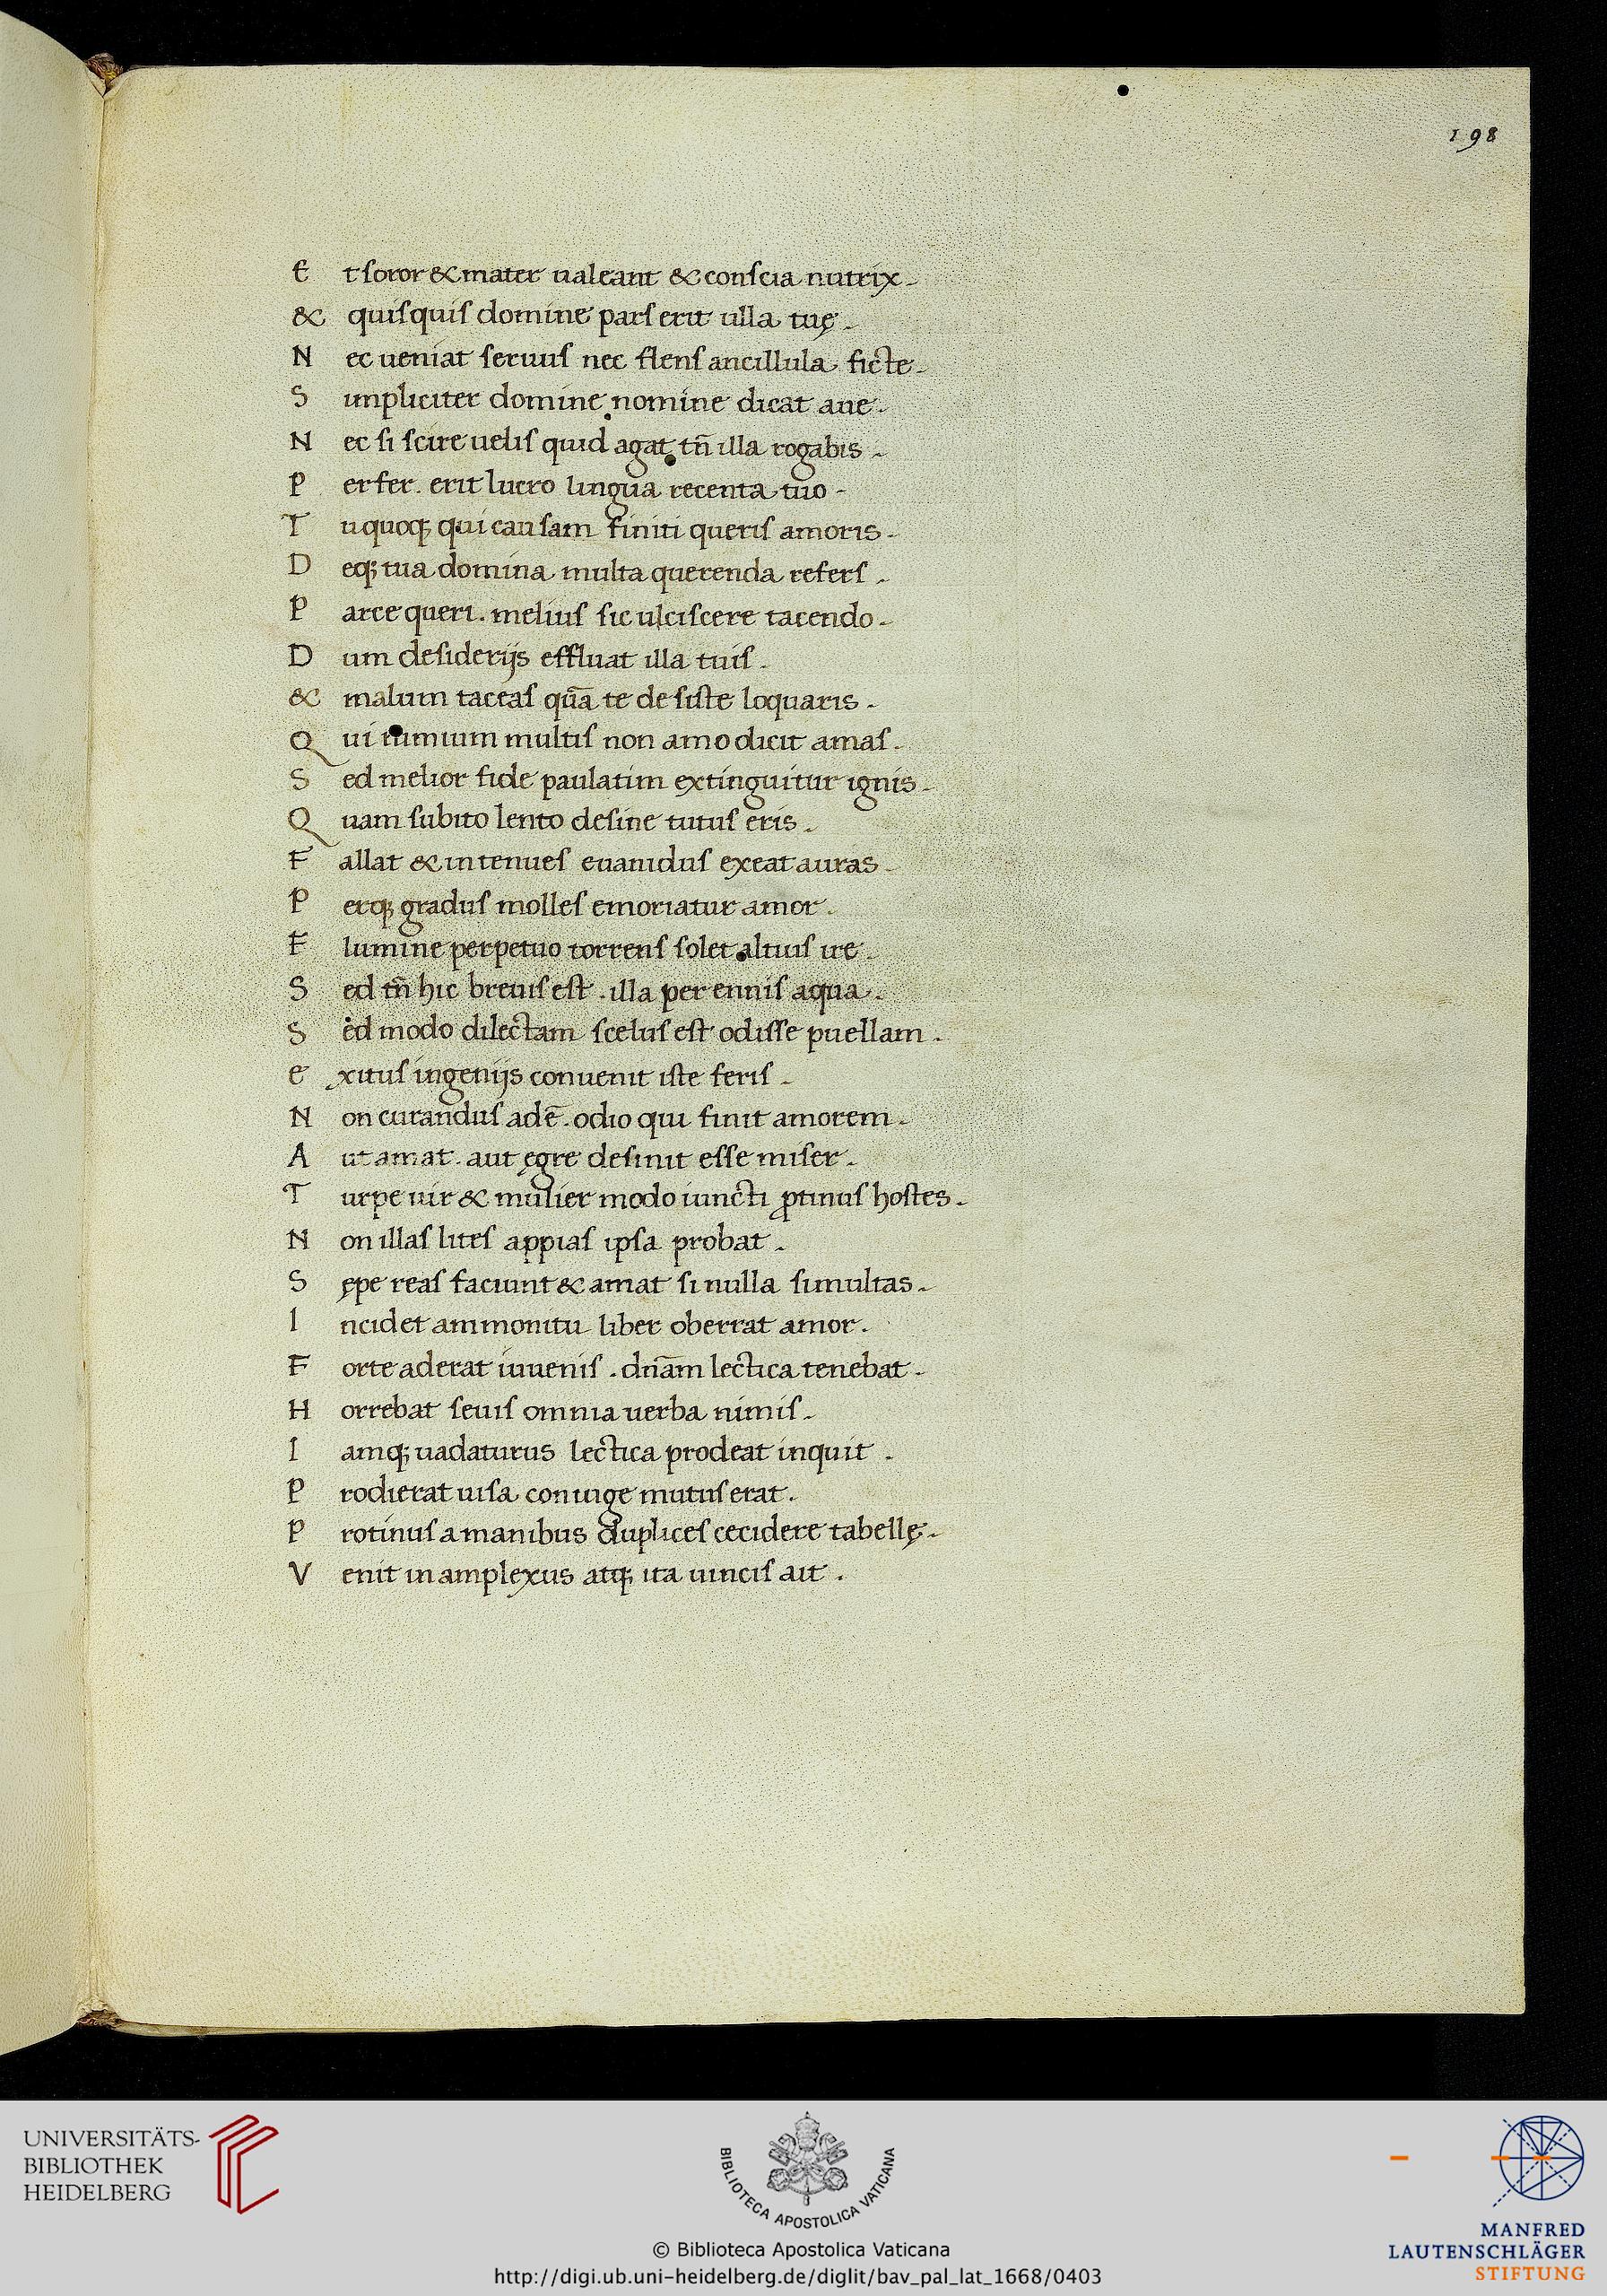 198
Et soror & mater ualeant & conscia nutrix.
& quisquis domine pars erit ulla tuę.
Nec ueniat seruus nec flens ancillula ficte.
Simpliciter domine nomine dicat aue.
Nec si scire uelis quid agat tn̄ illa rogabis.
Perfer. erit lucro lingua retenta tuo.
Tu quoq; qui causam finiti queris amoris.
Deq; tua domina multa querenda refers.
Parce queri. melius sic ulciscere tacendo.
Dum desiderijs effluat illa tuis.
& malum taceas quā te desiste loquaris.
Qui nimium multis non amo dicit amas.
Sed melior fide paulatim extinguitur ignis.
Quam subito lento desine tutus eris.
Fallat & in tenues euanidus exeat auras.
Perq; gradus molles emoriatur amor.
Flumine perpetuo torrens solet altius ire.
Sed tn̄ hic breuis est. illa perennis aqua.
Sed modo dilectam scelus est odisse puellam.
exitus ingenijs conuenit iste feris.
Non curandus adē. odio qui finit amorem.
Aut amat. aut ęgre desinit esse miser.
Turpe uir & mulier modo iuncti ꝓtinus hostes.
Non illas lites appias ipsa probat.
Sępe reas faciunt & amat si nulla simultas.
Incidet ammonitu liber oberrat amor.
Forte aderat iuuenis. dn̄am lectica tenebat.
Horrebat seuis omnia uerba nimis.
Iamq; uadaturus lectica prodeat inquit.
Prodierat uisa coniuge mutus erat.
Protinus a manibus duplices cecidere tabellę.
Venit in amplexus atq; ita uincis ait.
UNIVERSITÄTS-
BIBLIOTHEK
HEIDELBERG
BIBLIOTECA APOSTOLICA VATICANA
© Biblioteca Apostolica Vaticana
http://digi.ub.uni-heidelberg.de/diglit/bav_pal_lat_1668/0403
MANFRED
LAUTENSCHLÄGER
STIFTUNG